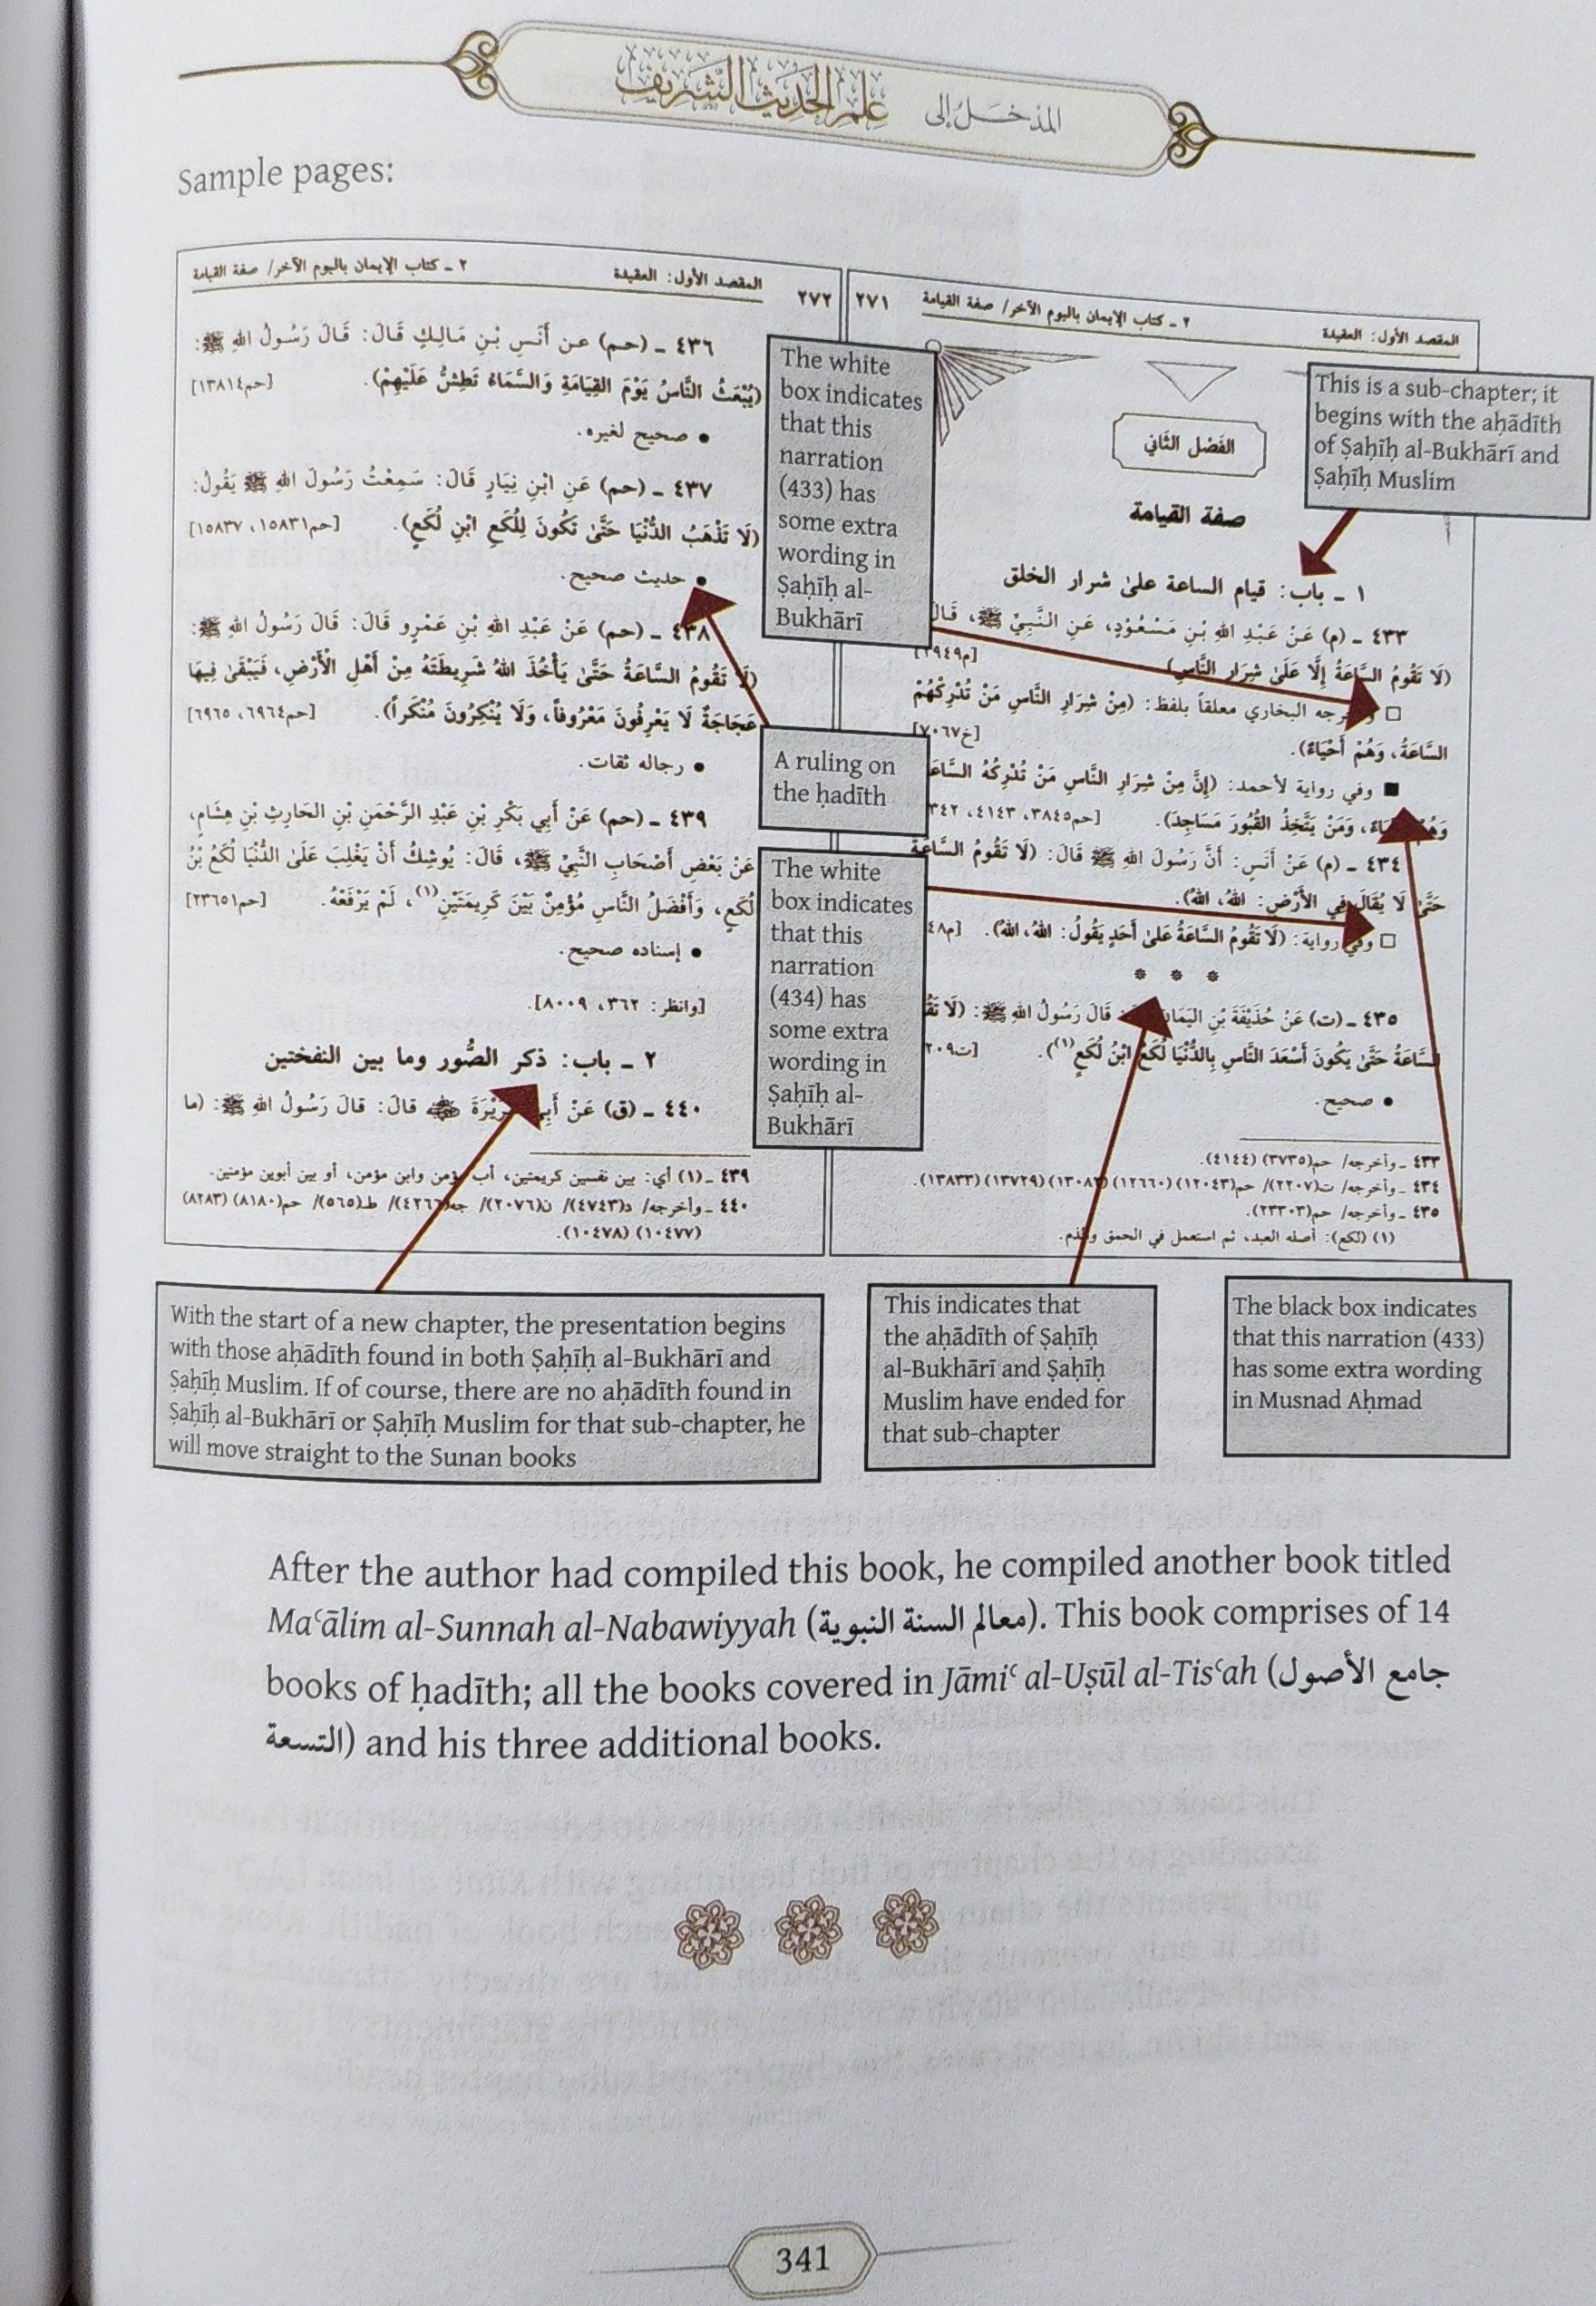 المدخل إلى علم الحديث الشريف
Sample pages:
المقصد الأول: العقيدة
٢ ـ كتاب الإيمان باليوم الآخر/ صفة القيامة
٢٧١
الفَصْل الثَّاني
صفة القيامة
١ ـ باب: قيام الساعة علىٰ شرار الخلق
٤٣٣ ـ (م) عَنْ عَبْدِ اللهِ بْنِ مَسْعُوْدٍ، عَنِ النَّبِيِّ ﷺ، قَالَ
(لَا تَقُومُ السَّاعَةُ إِلَّا عَلَىٰ شِرَارِ النَّاسِ)
□ البخاري معلقاً بلفظ: (مِنْ شِرَارِ النَّاسِ مَنْ تُدْرِكْهُمُ
السَّاعَةُ، وَهُمْ أَحْيَاءٌ). [خ٧٠٦٧]
■ وفي رواية لأحمد: (إِنَّ مِنْ شِرَارِ النَّاسِ مَنْ تُدْرِكُهُ السَّاعَ
وَمَنْ يَتَّخِذُ القُبُورَ مَسَاجِدَ). [حم٣٨٤٥، ٤١٤٣، ٣٤٢
٤٣٤ ـ (م) عَنْ أَنَسٍ: أَنَّ رَسُولَ اللهِ ﷺ قَالَ: (لَا تَقُومُ السَّاعَةُ
حَتَّىٰ لَا يُقَالَ فِي الأَرْضِ: اللهُ، اللهُ).
□ رواية: (لَا تَقُومُ السَّاعَةُ عَلىٰ أَحَدٍ يَقُولُ: اللهُ، اللهُ). [م١٤٨
* * *
٤٣٥ ـ (ت) عَنْ حُذَيْفَةَ بْنِ اليَمَانِ قَالَ رَسُولُ اللهِ ﷺ: (لَا تَقُ
السَّاعَةُ حَتَّىٰ يَكُونَ أَسْعَدَ النَّاسِ بِالدُّنْيَا لُكَعُ ابْنُ لُكَعٍ(١)). [ت٢٢٠٩
• صحيح.
٤٣٣ ـ وأخرجه/ حم(٣٧٣٥) (٤١٤٤).
٤٣٤ ـ وأخرجه/ ت(٢٢٠٧)/ حم(١٢٠٤٣) (١٢٦٦٠) (١٣٠٨٢) (١٣٧٢٩) (١٣٨٣٣).
٤٣٥ ـ وأخرجه/ حم(٢٣٣٠٣).
(١) (لكع): أصله العبد، ثم استعمل في الحمق والذم.
المقصد الأول: العقيدة
٢ ـ كتاب الإيمان باليوم الآخر/ صفة القيامة
٢٧٢
٤٣٦ ـ (حم) عن أَنَسِ بْنِ مَالِكٍ قَالَ: قَالَ رَسُولُ اللهِ ﷺ:
(يُبْعَثُ النَّاسُ يَوْمَ القِيَامَةِ وَالسَّمَاءُ تَطِشُّ عَلَيْهِمْ). [حم١٣٨١٤]
• صحيح لغيره.
٤٣٧ ـ (حم) عَنِ ابْنِ نِيَارٍ قَالَ: سَمِعْتُ رَسُولَ اللهِ ﷺ يَقُولُ:
(لَا تَذْهَبُ الدُّنْيَا حَتَّىٰ تَكُونَ لِلُكَعِ ابْنِ لُكَعٍ). [حم١٥٨٣١، ١٥٨٣٧]
• حديث صحيح.
٤٣٨ ـ (حم) عَنْ عَبْدِ اللهِ بْنِ عَمْرٍو قَالَ: قَالَ رَسُولُ اللهِ ﷺ:
(لَا تَقُومُ السَّاعَةُ حَتَّىٰ يَأْخُذَ اللهُ شَرِيطَتَهُ مِنْ أَهْلِ الأَرْضِ، فَيَبْقَىٰ فِيهَا
عَجَاجَةٌ لَا يَعْرِفُونَ مَعْرُوفاً، وَلَا يُنْكِرُونَ مُنْكَراً). [حم٦٩٦٤، ٦٩٦٥]
• رجاله ثقات.
٤٣٩ ـ (حم) عَنْ أَبِي بَكْرِ بْنِ عَبْدِ الرَّحْمَنِ بْنِ الحَارِثِ بْنِ هِشَامٍ،
عَنْ بَعْضِ أَصْحَابِ النَّبِيِّ ﷺ، قَالَ: يُوشِكُ أَنْ يَغْلِبَ عَلَىٰ الدُّنْيَا لُكَعُ بْنُ
لُكَعٍ، وَأَفْضَلُ النَّاسِ مُؤْمِنٌ بَيْنَ كَرِيمَتَيْنِ(١)، لَمْ يَرْفَعْهُ. [حم٢٣٦٥١]
• إسناده صحيح.
[وانظر: ٣٦٢، ٨٠٠٩].
٢ ـ باب: ذكر الصُّور وما بين النفختين
٤٤٠ ـ (ق) عَنْ أَبِي هُرَيْرَةَ ﵁ قالَ: قالَ رَسُولُ اللهِ ﷺ: (ما
٤٣٩ ـ (١) أي: بين نفسين كريمتين، أب مؤمن وابن مؤمن، أو بين أبوين مؤمنين.
٤٤٠ ـ وأخرجه/ د(٤٧٤٣)/ ن(٢٠٧٦)/ جه(٤٢٦٦)/ ط(٥٦٥)/ حم(٨١٨٠) (٨٢٨٣)
(١٠٤٧٧) (١٠٤٧٨).
The white
box indicates
that this
narration
(433) has
some extra
wording in
Ṣaḥīḥ al-
Bukhārī
This is a sub-chapter; it
begins with the aḥādīth
of Ṣaḥīḥ al-Bukhārī and
Ṣaḥīḥ Muslim
A ruling on
the ḥadīth
The white
box indicates
that this
narration
(434) has
some extra
wording in
Ṣaḥīḥ al-
Bukhārī
With the start of a new chapter, the presentation begins
with those aḥādīth found in both Ṣaḥīḥ al-Bukhārī and
Ṣaḥīḥ Muslim. If of course, there are no aḥādīth found in
Ṣaḥīḥ al-Bukhārī or Ṣaḥīḥ Muslim for that sub-chapter, he
will move straight to the Sunan books
This indicates that
the aḥādīth of Ṣaḥīḥ
al-Bukhārī and Ṣaḥīḥ
Muslim have ended for
that sub-chapter
The black box indicates
that this narration (433)
has some extra wording
in Musnad Aḥmad
After the author had compiled this book, he compiled another book titled
Maʿālim al-Sunnah al-Nabawiyyah (معالم السنة النبوية). This book comprises of 14
books of ḥadīth; all the books covered in Jāmiʿ al-Uṣūl al-Tisʿah (جامع الأصول
التسعة) and his three additional books.
341